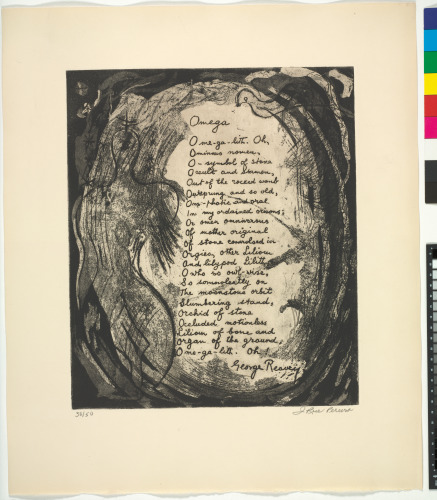 Omega
O me-ga-lith. Oh,
Ominous nomen,
O-symbol of stone
Occult and
Out of the rocked womb
Outsprung and so old,
oral
In my ordained orisons;
Or omen
Of mother original
Of stone ensorceled in
Orgies, other Lilium
And lilypod Lilith,
O who so owl-wise,
So somnolently on
The moonstone orbit
Slumbering stand,
Orchid of stone
Occluded motionless
Lilium of bone and
Organ of the ground,
O me-ga-lith. Oh!
George Reavey
30/50
I. Rice Pereira